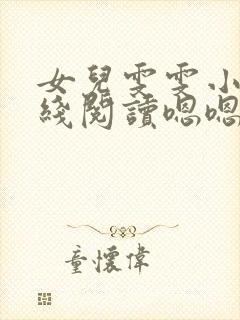 女兒雯雯小
綫閱讀嗯嗯
童懷偉